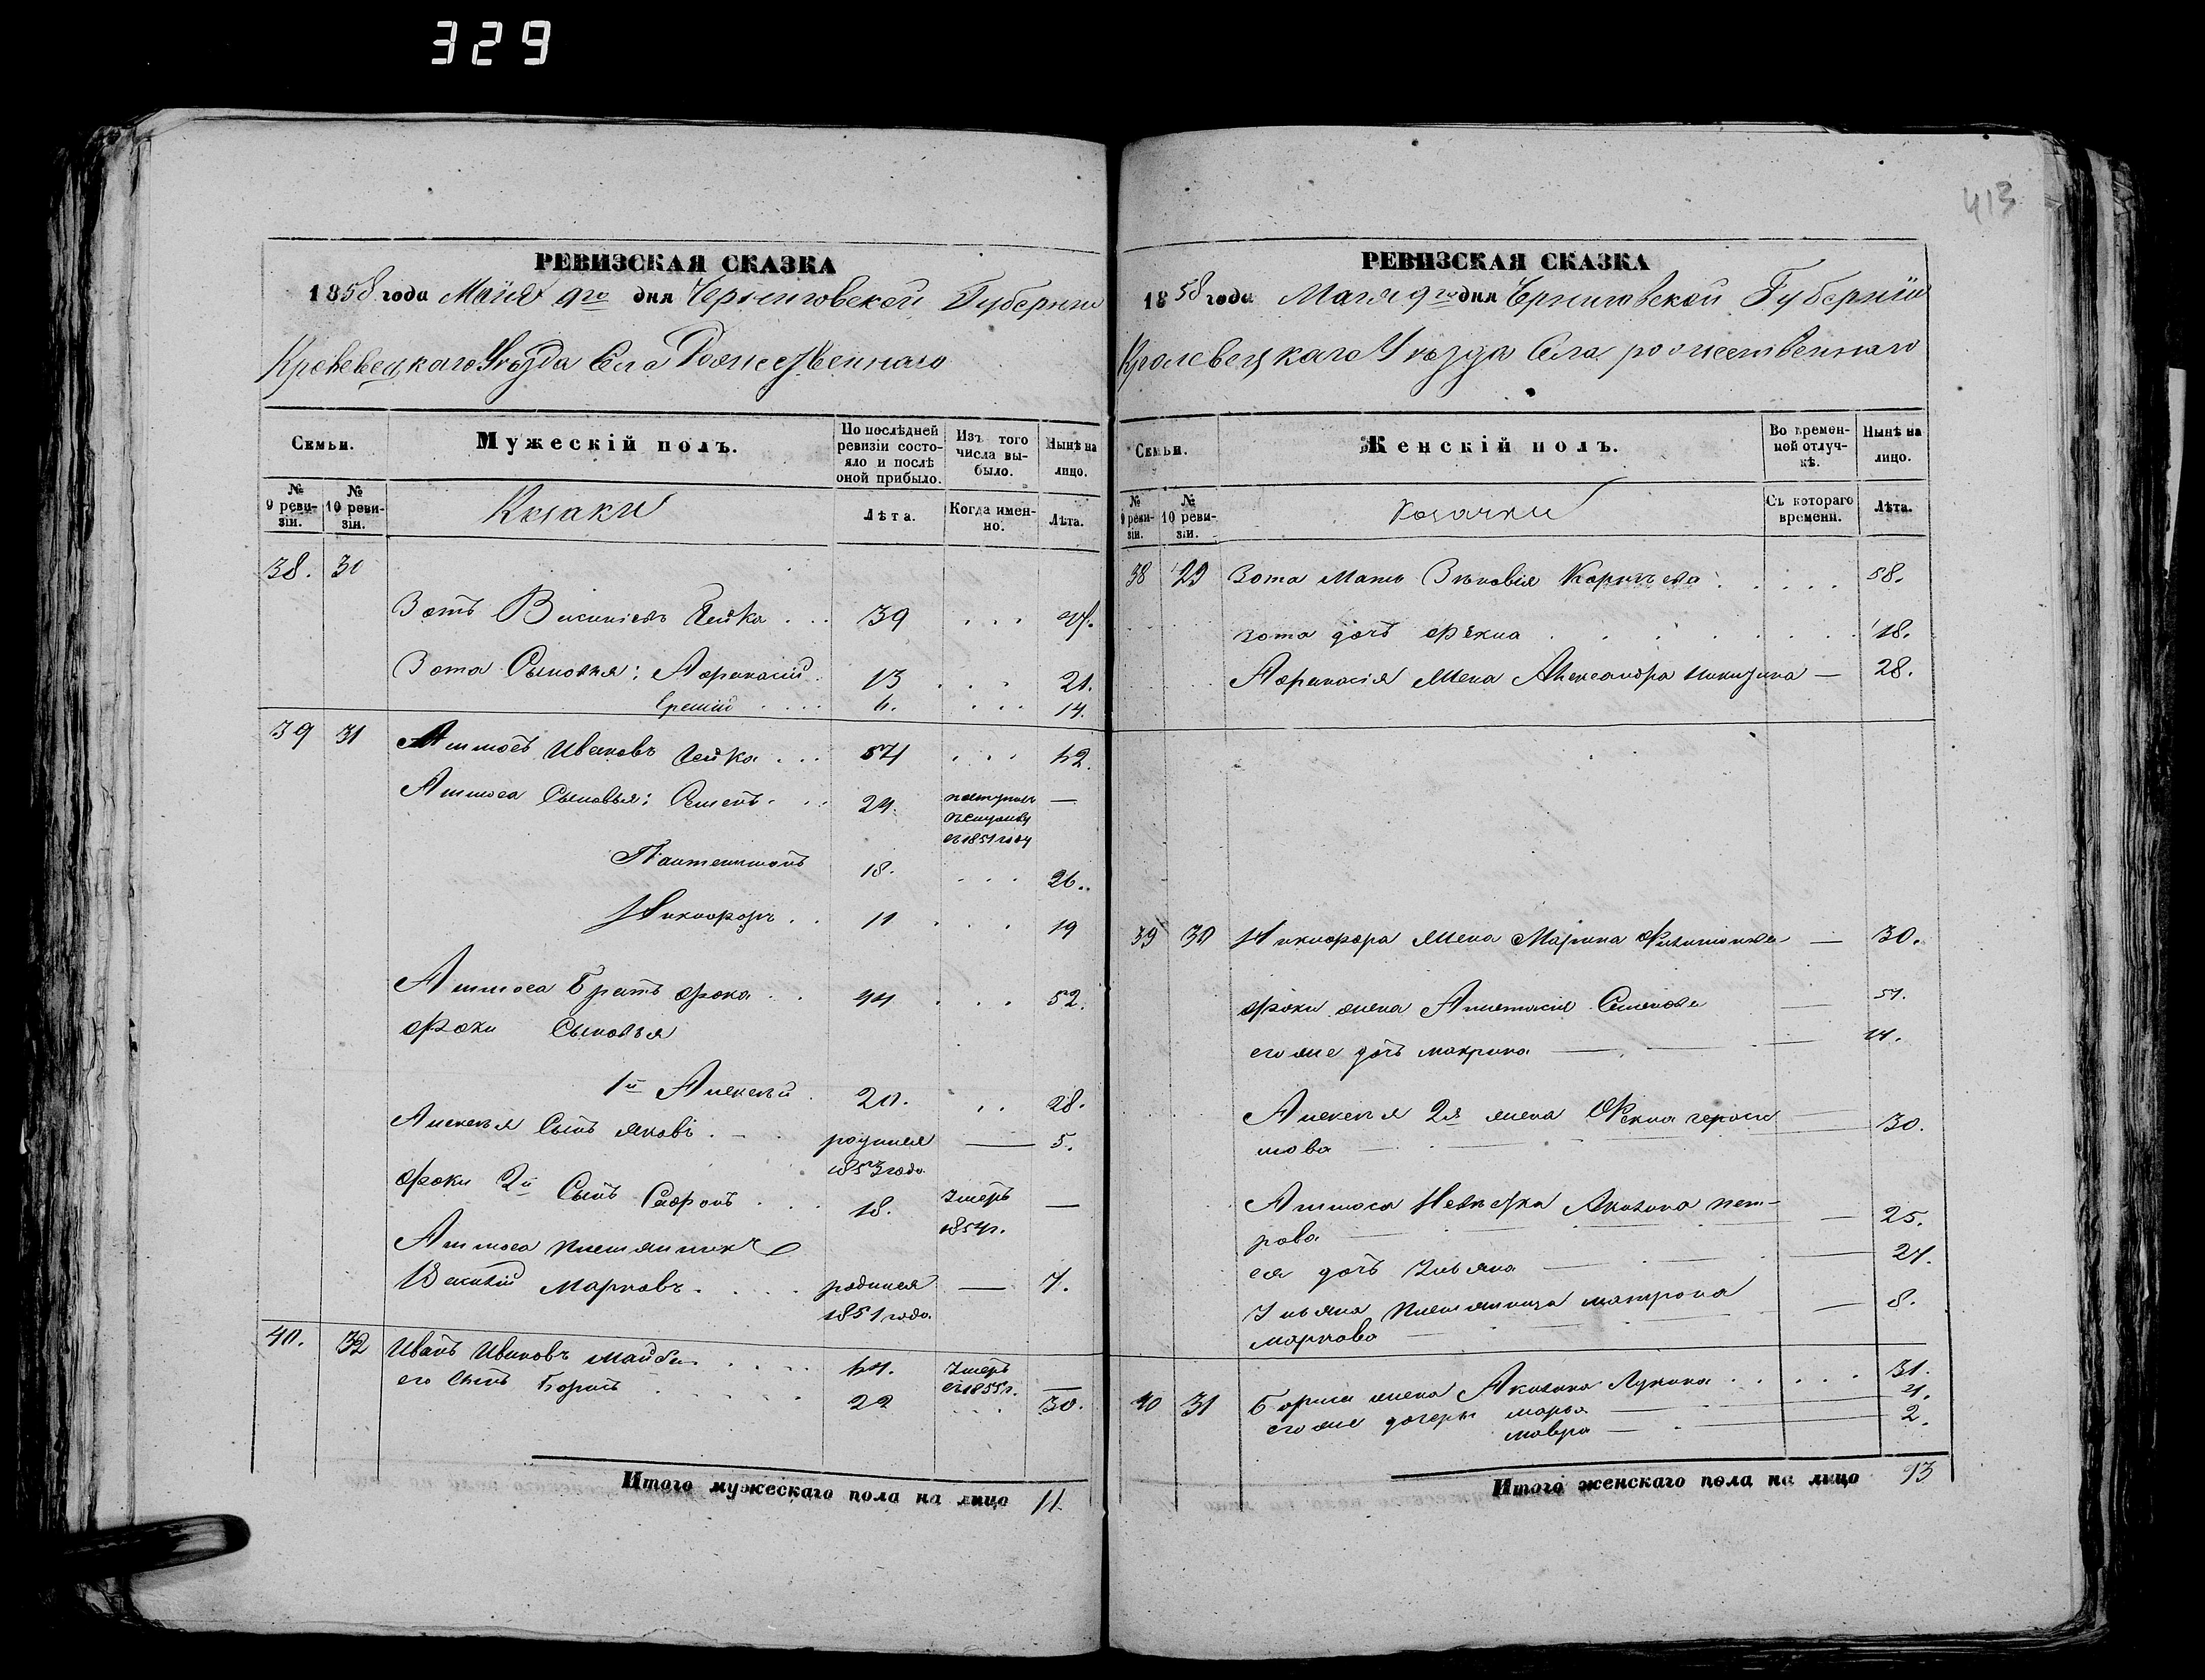 329
413
РЕВИЗСКАЯ СКАЗКА
1858 года Маія 9го дня Черниговской Губерніи
Кролевецкаго Уѣзда Села Рожественнаго
Семьи.
Мужескій полъ.
По послѣдней ревизіи состояло и послѣ оной прибыло.
Изъ того числа выбыло.
Нынѣ на лицо.
№ 9 ревизіи.
№ 10 ревизіи.
Козаки
Лѣта.
Когда именно.
Лѣта.
38. 30
Зотъ Чейка . . . 39 . . .
Зота Сыновья: Афанасий. 13 . . . 21.
6. . . . 14.
39 31 Аммосъ Ивановъ Чейка . . . 54 . . . 62.
Аммоса Сыновья: Семенъ . . . 24. —
въ 1851 году
Пантелимонъ 18. . . . 26.
Никифоръ . . 11 . . . 19
Аммоса Братъ Фока . . 44 . . . 52.
Фоки Сыновья
1й Алексѣй . 20. . . 28.
Алексѣя Сынъ Яковъ . — . родился — 5.
1853 года
Фоки 2й Сынъ Софронъ . . . 18. Умеръ —
1854г.
Аммоса племянникъ
Василій Марковъ . . . . родился — 7.
1851 года.
40. 32 Иванъ Ивановъ . . . . 64. Умеръ —
въ 1855г.
его Сынъ Борисъ . . . . 22 . . . 30.
Итого мужескаго пола на лицо 11
РЕВИЗСКАЯ СКАЗКА
1858 года Маія 9го дня Черниговской Губерніи
Кролевецкаго Уѣзда Села рожественнаго
Семьи.
Женскій полъ.
Во временной отлучкѣ.
Нынѣ на лицо.
№ 9 ревизіи.
№ 10 ревизіи.
козачки
Съ котораго времени.
Лѣта.
38 29 Зота Мать Зѣновія . . . . . 58.
Зота дочь Фекла . . . . . . . 18.
Афанасія Жена Александра Никитина — 28.
39 30 Никифора Жена Марина Филимонова — 30.
Фоки жена Анастасія Семенова — 51.
его же дочь макрина — — —
Алексѣя 2я жена Фекла гераси
мова — — 30.
Аммоса Невѣстка Акилина пет-
рова — — 25.
ея дочь Ульяна — — —
Ульяна племянница матрона
маркова — — 8.
40 31 Бориса жена Акилина Лукина . . . . . 31.
его же дочери марья —
мавра — 2.
Итого женскаго пола на лицо 13